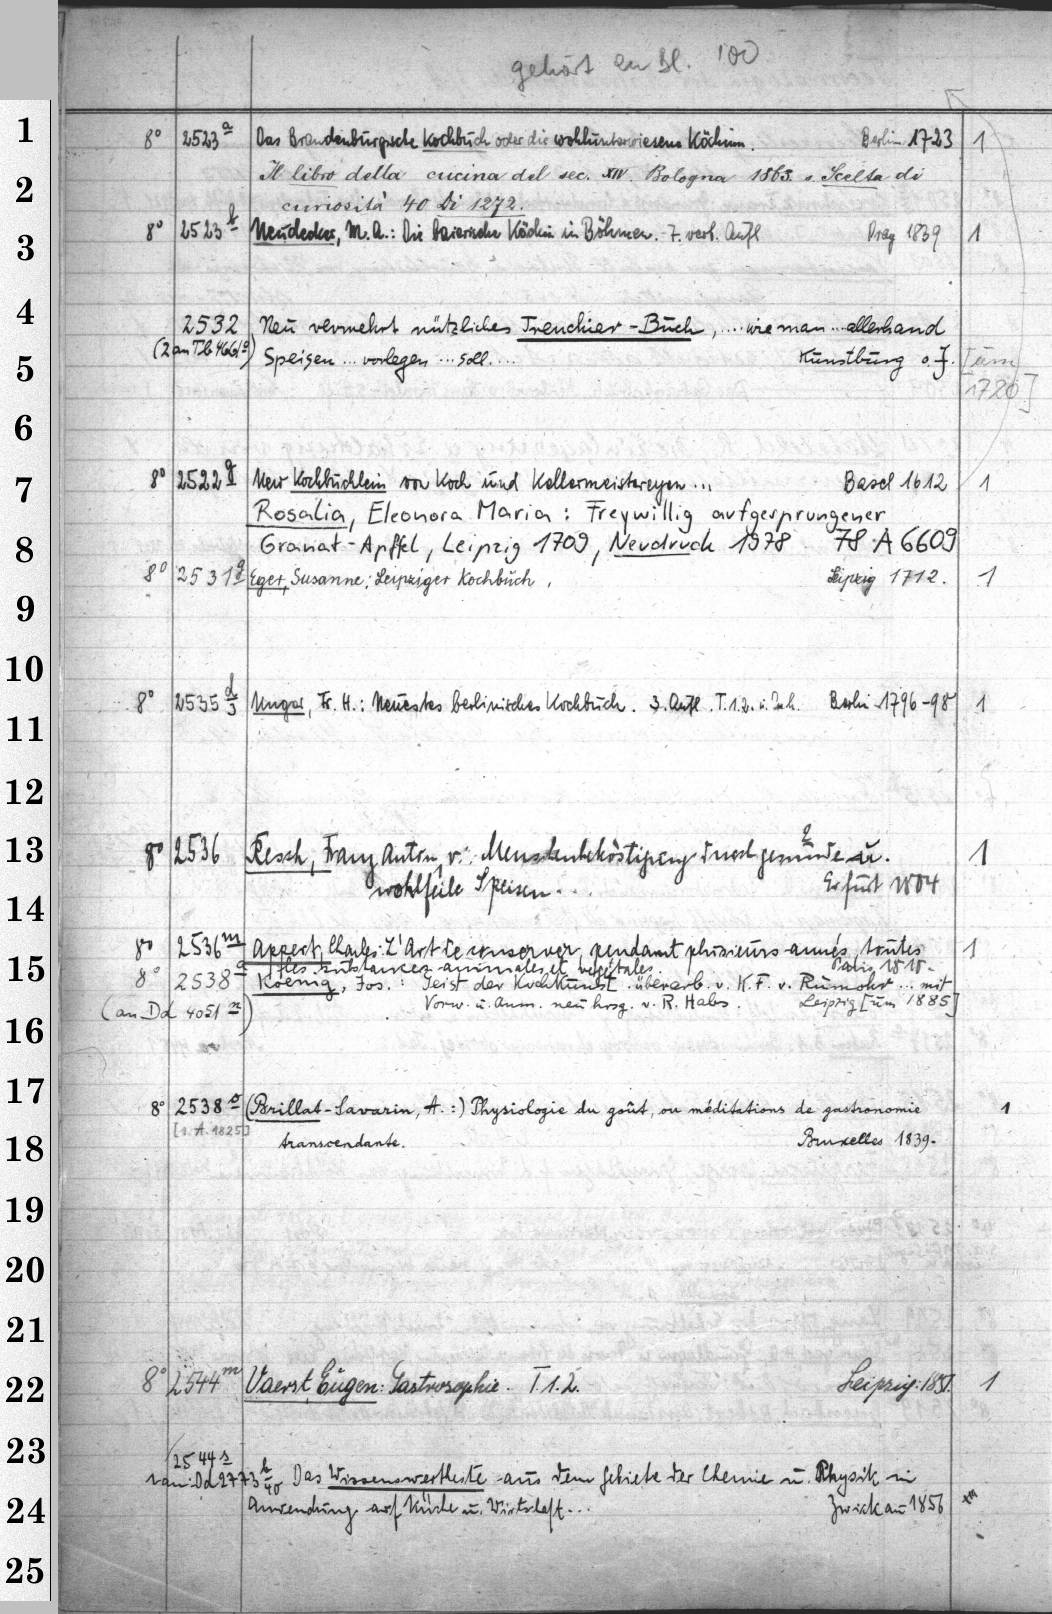 gehört zu Bl. 100
1 8° 2523 a Das Brandenburgische Kochbuch oder die wohlunterwiesene Köchinn. Berlin 1723 1
2 Il libro della cucina del sec. XIV. Bologna 1863. s. Scelta di
curiosità 40 Di 1272.
3 8° 2523 b Neudecker, M. A.: Die baierische Köchin in Böhmen. 7. verb. Aufl Prag 1839 1
4 2532 Neu vermehrt nützliches Trenchier-Buch, .... wie man ... allerhand
5 (2 an Tb 4661 a) Speisen ... vorlegen ... soll.... Kunstburg o. J. [um
1720]
6
7 8° 2522 g New Kochbüchlein von Koch und Kellermeistereyen ... Basel 1612 1
Rosalia, Eleonora Maria: Freywillig aufgesprungener
8 Granat-Apffel, Leipzig 1709, Neudruck 1978 78 A 6609
9 8° 2531 g Eger, Susanne: Leipziger Kochbuch. Leipzig 1712. 1
10
11 8° 2535 d/3 Unger, Fr. H.: Neuestes berlinisches Kochbuch. 3. Aufl. T. 1.2. Berlin 1796-98 1
12
13 8° 2536 Resch, Franz Anton, v.: Menschenbeköstigung durch gesunde u. 1
14 wohlfeile Speisen... Erfurt 1804
8° 2536 m Appert, Charles: L'Art de conserver, pendant plusieurs années, toutes 1
15 les substances animales et végétales. Paris 1810.
8° 2538 a Koenig, Jos.: Geist der Kochkunst. überarb. v. K. F. v. Rumohr ... mit
16 (an Dd 4051 n) Vorw. u. Anm. neu hrsg. v. R. Habs. Leipzig [um 1885]
17 8° 2538 o (Brillat-Savarin, A.:) Physiologie du goût, ou méditations de gastronomie 1
18 [1. A. 1825] transcendante. Bruxelles 1839.
19
20
21
22 8° 2544 m Vaerst, Eugen: Gastrosophie. T 1.2. Leipzig 1851. 1
23 2544 s
1 an Dd 2773 b/40 Das Wissenswertheste aus dem Gebiete der Chemie u. Physik in
24 Anwendung auf Küche u. Wirtschaft... Zwickau 1856
25